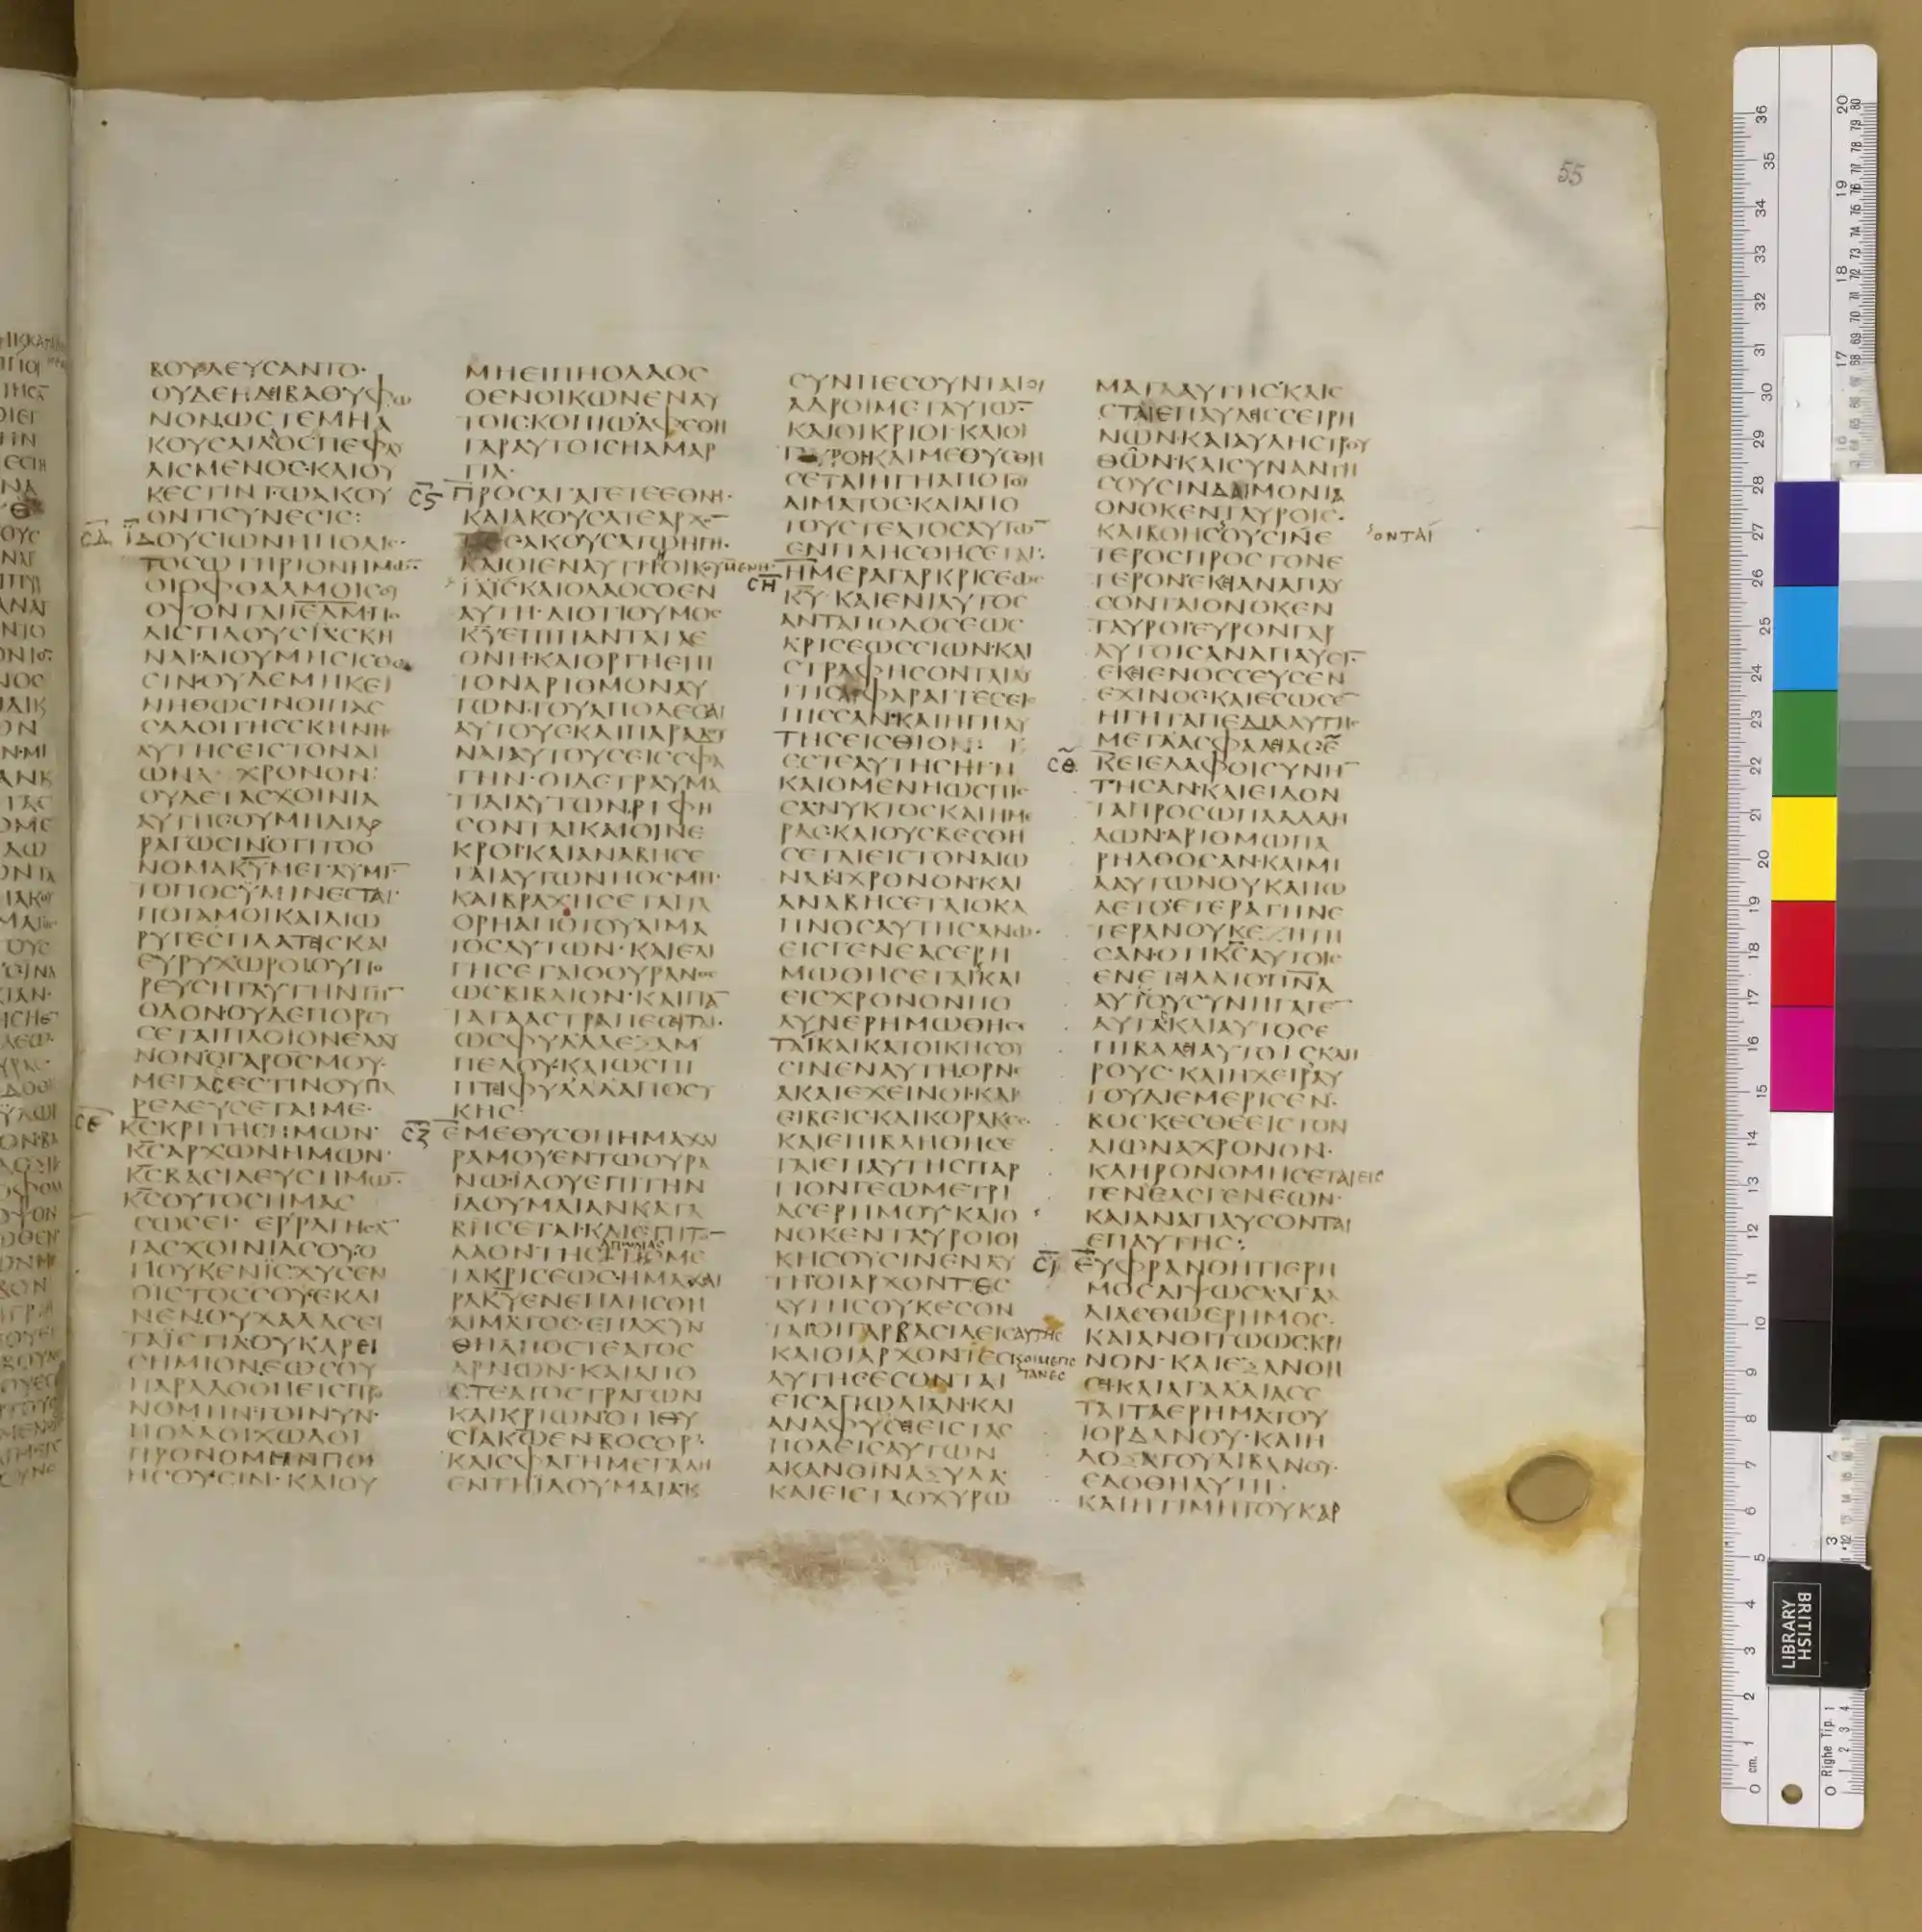 55
ΒΟΥΛΕΥϹΑΝΤΟ·
ΟΥΔΕΗΔΙΒΑΘΥΦΩ
ΝΟΝΩϹΤΕΜΗΑ
ΚΟΥϹΑΙΛΑΟϹΠΕΦΑΥ
ΛΙϹΜΕΝΟϹ·ΚΑΙΟΥ
ΚΕϹΤΙΝΤΩΑΚΟΥ
ΟΝΤΙϹΥΝΕϹΙϹ:
ϹΔ ΪΔΟΥϹΙΩΝΗΠΟΛΙϹ·
ΤΟϹΩΤΗΡΙΟΝΗΜΩ̅·
ΟΙΟΦΘΑΛΜΟΙϹΟΥ
ΟΨΟΝΤΑΙ ΠΟ
ΛΙϹΠΛΟΥϹΙΑϹΚΗ
ΝΑΙΑΙΟΥΜΗϹΙϹΘΩ
ϹΙΝΟΥΔΕΜΗΚΕΙ
ΝΗΘΩϹΙΝΟΙΠΑϹ
ϹΑΛΟΙΤΗϹϹΚΗΝΗϹ
ΑΥΤΗϹΕΙϹΤΟΝΑΙ
ΩΝΑ ΧΡΟΝΟΝ:
ΟΥΔΕΤΑϹΧΟΙΝΙΑ
ΑΥΤΗϹΟΥΜΗΔΙΑΡ
ΡΑΓΩϹΙΝΟΤΙΤΟΟ
ΝΟΜΑΚ̅Υ̅ΜΕΓΑΥΜΙ̅
ΤΟΠΟϹΥΜΙΝΕϹΤΑΙ·
ΠΟΤΑΜΟΙΚΑΙΔΙΩ
ΡΥΓΕϹΠΛΑΤΕΙϹΚΑΙ
ΕΥΡΥΧΩΡΟΙΟΥΠΟ
ΡΕΥϹΗΤΑΥΤΗΝΤΗ̅
ΟΔΟΝΟΥΔΕΠΟΡΕΥ
ϹΕΤΑΙΠΛΟΙΟΝΕΛΑΥ
ΝΟΝΟΓΑΡΘ̅Ϲ̅ΜΟΥ
ΜΕΓΑϹΕϹΤΙΝΟΥΠΑ
ΡΕΛΕΥϹΕΤΑΙΜΕ·
ϹΕ Κ̅Ϲ̅ΚΡΙΤΗϹΗΜΩΝ·
Κ̅Ϲ̅ΑΡΧΩΝΗΜΩΝ·
Κ̅Ϲ̅ΒΑϹΙΛΕΥϹΗΜΩ̅·
Κ̅Ϲ̅ΟΥΤΟϹΗΜΑϹ
ϹΩϹΕΙ· ΕΡΡΑΓΗϹΑ̅
ΤΑϹΧΟΙΝΙΑϹΟΥΟ
ΠΟΥΚΕΝΙϹΧΥϹΕΝ
ΟΙϹΤΟϹϹΟΥΕΚΛΙ
ΝΕΝΟΥΧΑΛΑϹΕΙ
ΤΑΪϹΤΙΑΟΥΚΑΡΕΙ
ϹΗΜΙΟΝΕΩϹΟΥ
ΠΑΡΑΔΟΘΗΕΙϹΠΡΟ
ΝΟΜΗΝΤΟΙΝΥΝ·
ΠΟΛΛΟΙΧΩΛΟΙ
ΠΡΟΝΟΜΗΝΠΟΙ
ΗϹΟΥϹΙΝ·ΚΑΙΟΥ
ΜΗΕΙΠΗΟΛΑΟϹ
ΟΕΝΟΙΚΩΝΕΝΑΥ
ΤΟΙϹΚΟΠΙΩΑΦΕΘΗ
ΓΑΡΑΥΤΟΙϹΗΑΜΑΡ
ΤΙΑ·
Ϲϛ ΠΡΟϹΑΓΑΓΕΤΕΕΘΝΗ·
ΚΑΙΑΚΟΥϹΑΤΕΑΡΧ
ΑΚΟΥϹΑΤΩΗΓΗ·
ΚΑΙΟΙΕΝΑΥΤΗΗΟΙΚΟΥΜΕΝΗ
ΚΑΙΟΛΑΟϹΟΕΝ
ΑΥΤΗ·ΔΙΟΤΙΘΥΜΟϹ
Κ̅Υ̅ΕΠΙΠΑΝΤΑΤΑΕ
ΘΝΗ·ΚΑΙΟΡΓΗΕΠΙ
ΤΟΝΑΡΙΘΜΟΝΑΥ
ΤΩΝ·ΤΟΥΑΠΟΛΕϹΑΙ
ΑΥΤΟΥϹΚΑΙΠΑΡΑΔΟΥ
ΝΑΙΑΥΤΟΥϹΕΙϹϹΦΑ
ΓΗΝ·ΟΙΔΕΤΡΑΥΜΑ
ΤΙΑΙΑΥΤΩΝΡΙΦΗ
ϹΟΝΤΑΙΚΑΙΟΙΝΕ
ΚΡΟΙ·ΚΑΙΑΝΑΒΗϹΕ
ΤΑΙΑΥΤΩΝΗΟϹΜΗ·
ΚΑΙΒΡΑΧΗϹΕΤΑΙΤΑ
ΟΡΗΑΠΟΤΟΥΑΙΜΑ
ΤΟϹΑΥΤΩΝ·ΚΑΙΕΛΙ
ΓΗϹΕΤΑΙΟΟΥΡΑΝΟϹ
ΩϹΒΙΒΛΙΟΝ·ΚΑΙΠΑ̅
ΤΑΤΑΑϹΤΡΑΠΕϹΙΤΑΙ·
ΩϹΦΥΛΛΑΕΞΑΜ
ΠΕΛΟΥ·ΚΑΙΩϹΠΙ
ΠΤΕΙΦΥΛΛΑΑΠΟϹΥ
ΚΗϹ·
Ϲζ ΕΜΕΘΥϹΘΗΗΜΑΧΑΙ
ΡΑΜΟΥΕΝΤΩΟΥΡΑ
ΝΩ·ΙΔΟΥΕΠΙΤΗΝ
ΙΔΟΥΜΑΙΑΝΚΑΤΑ
ΒΗϹΕΤΑΙ·ΚΑΙΕΠΙΤΟ̅
ΑΠΩΛΙΑϹ
ΛΑΟΝΤΗϹ ΜΕ
ΤΑΚΡΙϹΕΩϹ·ΗΜΑΧΑΙ
ΡΑΚ̅Υ̅ΕΝΕΠΛΗϹΘΗ
ΑΙΜΑΤΟϹ·ΕΠΑΧΥΝ
ΘΗΑΠΟϹΤΕΑΤΟϹ
ΑΡΝΩΝ·ΚΑΙΑΠΟ
ϹΤΕΑΤΟϹΤΡΑΓΩΝ
ΚΑΙΚΡΙΩΝΟΤΙΘΥ
ϹΙΑΚ̅Ω̅ΕΝΒΟϹΟΡ·
ΚΑΙϹΦΑΓΗΜΕΓΑΛΗ
ΕΝΤΗΙΔΟΥΜΑΙΑΚ
ϹΥΝΠΕϹΟΥΝΤΑΙΟΙ
ΑΔΡΟΙΜΕΤΑΥΤΩ̅·
ΚΑΙΟΙΚΡΙΟΙ·ΚΑΙΟΙ
ΚΑΙΜΕΘΥϹΘΗ
ϹΕΤΑΙΗΓΗΑΠΟΤΟΥ
ΑΙΜΑΤΟϹ·ΚΑΙΑΠΟ
ΤΟΥϹΤΕΑΤΟϹΑΥΤΩ̅
ΕΝΠΛΗϹΘΗϹΕΤΑΙ:
ϹΗ ΗΜΕΡΑΓΑΡΚΡΙϹΕΩϹ
Κ̅Υ̅·ΚΑΙΕΝΙΑΥΤΟϹ
ΑΝΤΑΠΟΔΟϹΕΩϹ
ΚΡΙϹΕΩϹϹΙΩΝ·ΚΑΙ
ϹΤΡΑΦΗϹΟΝΤΑΙΑΥ
ΤΗϹΑΙΦΑΡΑΓΓΕϹΕΙϹ
ΠΙϹϹΑΝ·ΚΑΙΗΓΗΑΥ
ΤΗϹΕΙϹΘΙΟΝ:
ΕϹΤΕΑΥΤΗϹΗΓΗ
ΚΑΙΟΜΕΝΗΩϹΠΙϹ
ϹΑ·ΝΥΚΤΟϹΚΑΙΗΜΕ
ΡΑϹ·ΚΑΙΟΥϹΒΕϹΘΗ
ϹΕΤΑΙΕΙϹΤΟΝΑΙΩ
ΝΑΧΡΟΝΟΝ·ΚΑΙ
ΑΝΑΒΗϹΕΤΑΙΟΚΑ
ΠΝΟϹΑΥΤΗϹΑΝΩ·
ΕΙϹΓΕΝΕΑϹΕΡΗ
ΜΩΘΗϹΕΤΑΙΚΑΙ
ΕΙϹΧΡΟΝΟΝΠΟ
ΛΥΝΕΡΗΜΩΘΗϹΕ
ΤΑΙΚΑΙΚΑΤΟΙΚΗϹΟΥ
ϹΙΝΕΝΑΥΤΗΟΡΝΕ
ΑΚΑΙΕΧΕΙΝΟΙ·ΚΑΙ
ΕΙΒΕΙϹΚΑΙΚΟΡΑΚΕϹ·
ΚΑΙΕΠΙΒΛΗΘΗϹΕ
ΤΑΙΕΠΑΥΤΗϹΠΑΡ
ΤΙΟΝΓΕΩΜΕΤΡΙ
ΑϹΕΡΗΜΟΥ·ΚΑΙΟ
ΝΟΚΕΝΤΑΥΡΟΙΟΙ
ΚΗϹΟΥϹΙΝΕΝΑΥ
ΤΗΟΙΑΡΧΟΝΤΕϹ
ΑΥΤΗϹΟΥΚΕϹΟΝ
ΤΑΙΟΙΓΑΡΒΑϹΙΛΕΙϹΑΥΤΗϹ
ΚΑΙΟΙΑΡΧΟΝΤΕϹ ΚΟΙΜΕΓΙϹΤΑΝΕϹ
ΑΥΤΗϹΕϹΟΝΤΑΙ
ΕΙϹΑΠΩΛΙΑΝ·ΚΑΙ
ΑΝΑΦΥϹΕΙΕΙϹΤΑϹ
ΠΟΛΕΙϹΑΥΤΩΝ
ΑΚΑΝΘΙΝΑΞΥΛΑ·
ΚΑΙΕΙϹΤΑΟΧΥΡΩ
ΜΑΤΑΑΥΤΗϹ·ΚΑΙΕ
ϹΤΑΙΕΠΑΥΛΙϹϹΕΙΡΗ
ΝΩΝ·ΚΑΙΑΥΛΗϹΤΡΟΥ
ΘΩΝ·ΚΑΙϹΥΝΑΝΤΗ
ϹΟΥϹΙΝΔΑΙΜΟΝΙΑ
ΟΝΟΚΕΝΤΑΥΡΟΙϹ·
ΚΑΙΒΟΗϹΟΥϹΙΝΕ ΟΝΤΑΙ
ΤΕΡΟϹΠΡΟϹΤΟΝΕ
ΤΕΡΟΝΕΚΕΙΑΝΑΠΑΥ
ϹΟΝΤΑΙΟΝΟΚΕΝ
ΤΑΥΡΟΙΕΥΡΟΝΓΑΡ
ΑΥΤΟΙϹΑΝΑΠΑΥϹΙ̅
ΕΚΕΙΕΝΟϹϹΕΥϹΕΝ
ΕΧΙΝΟϹ·ΚΑΙΕϹΩϹΕ̅
ΗΓΗΤΑΠΕΔΙΑΑΥΤΗϹ
ΜΕΤΑΑϹΦΑΛΕΙΑϹΕ̅
Ϲθ ΚΕΙΕΛΑΦΟΙϹΥΝΗ̅
ΤΗϹΑΝ·ΚΑΙΕΙΔΟΝ
ΤΑΠΡΟϹΩΠΑΑΛΛΗ
ΛΩΝ·ΑΡΙΘΜΩΠΑ
ΡΗΛΘΟϹΑΝ·ΚΑΙΜΙ
ΑΑΥΤΩΝΟΥΚΑΠΩ
ΛΕΤΟΕΤΕΡΑΤΗΝΕ
ΤΕΡΑΝΟΥΚΕΖΗΤΗ
ϹΑΝ·ΟΤΙΚ̅Ϲ̅ΑΥΤΟΙϹ
ΕΝΕΤΕΙΛΑΤΟΤΟΠ̅Ν̅Α̅
ΑΥΤΟΥϹΥΝΗΓΑΓΕ̅
ΑΥΤΑΚΑΙΑΥΤΟϹΕ
ΠΙΒΑΛΕΙΑΥΤΟΙϹΚΛΗ
ΡΟΥϹ·ΚΑΙΗΧΕΙΡΑΥ
ΤΟΥΔΙΕΜΕΡΙϹΕΝ·
ΒΟϹΚΕϹΘΕΕΙϹΤΟΝ
ΑΙΩΝΑΧΡΟΝΟΝ·
ΚΛΗΡΟΝΟΜΗϹΕΤΑΙΕΙϹ
ΓΕΝΕΑϹΓΕΝΕΩΝ·
ΚΑΙΑΝΑΠΑΥϹΟΝΤΑΙ
ΕΠΑΥΤΗϹ:
Ϲι ΕΥΦΡΑΝΘΗΤΙΕΡΗ
ΜΟϹΔΙΨΩϹΑΑΓΑΛ
ΛΙΑϹΘΩΕΡΗΜΟϹ·
ΚΑΙΑΝΘΙΤΩΩϹΚΡΙ
ΝΟΝ·ΚΑΙΕΞΑΝΘΗ
ϹΕΙΚΑΙΑΓΑΛΛΙΑϹΕ
ΤΑΙΤΑΕΡΗΜΑΤΟΥ
ΙΟΡΔΑΝΟΥ·ΚΑΙΗ
ΔΟΞΑΤΟΥΛΙΒΑΝΟΥ·
ΕΔΟΘΗΑΥΤΗ·
ΚΑΙΗΤΙΜΗΤΟΥΚΑΡ
BRITISH LIBRARY
Righe Tip.
cm.